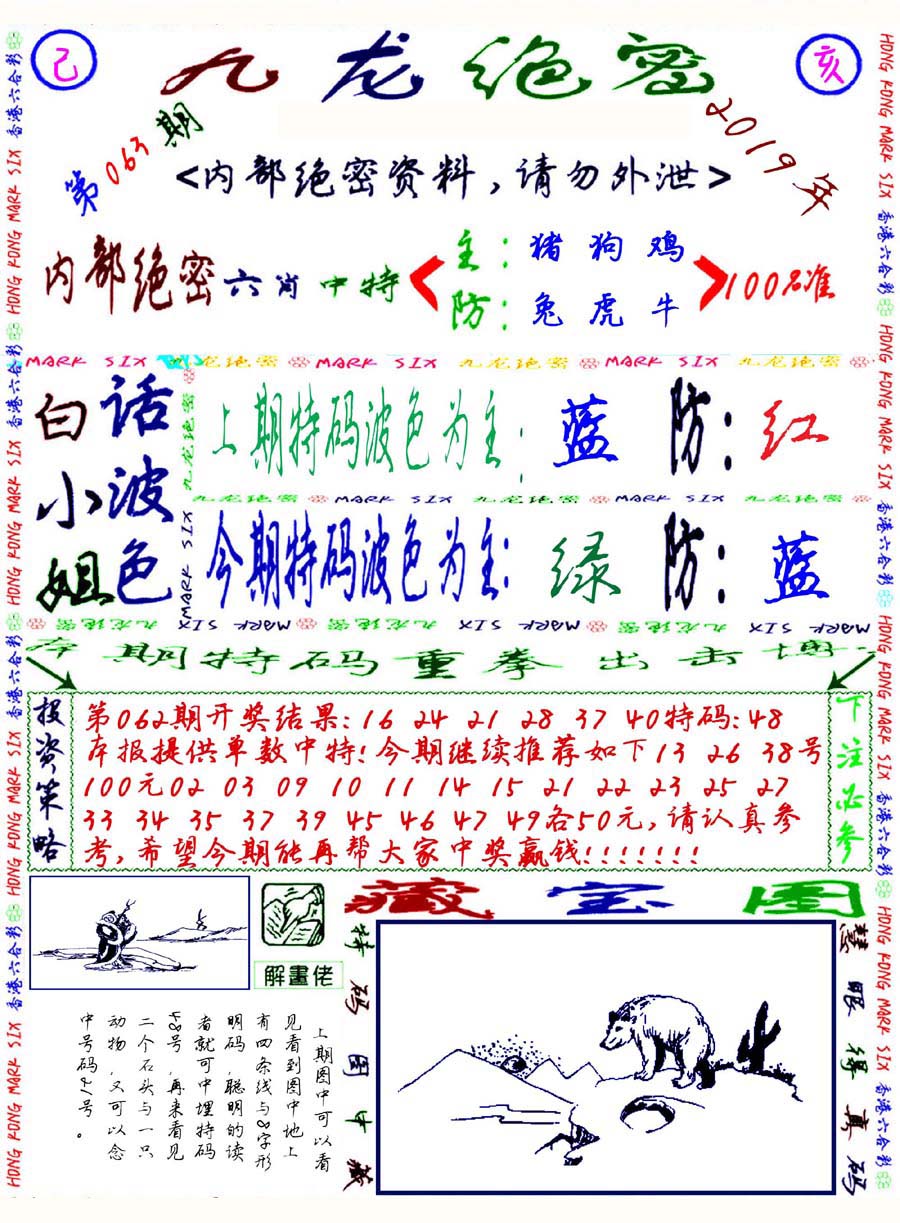 己
九龙绝密
亥
第063期
2019年
<内部绝密资料,请勿外泄>
内部绝密六肖中特
主:猪狗鸡
防:兔虎牛
100%准
MARK SIX 九龙绝密 MARK SIX 九龙绝密 MARK SIX 九龙绝密
白话小姐
波色
上期特码波色为主:蓝 防:红
九龙绝密 MARK SIX 九龙绝密 MARK SIX 九龙绝密
今期特码波色为主:绿 防:蓝
九龙绝密 MARK SIX
MARK SIX 九龙绝密 MARK SIX 九龙绝密 MARK SIX 九龙绝密
本期特码重拳出击博
投资策略
第062期开奖结果:16 24 21 28 37 40特码:48
本报提供单数中特!今期继续推荐如下13 26 38号
100元02 03 09 10 11 14 15 21 22 23 25 27
33 34 35 37 39 45 46 47 49各50元,请认真参
考,希望今期能再帮大家中奖赢钱!!!!!!!
下注必参
藏宝图
解畫佬
特码图中藏
慧眼得真码
上期图中可以看
见看到图中地上
有四条线与8字形
明码,聪明的读
者就可中埋特码
48号,再来看见
二个石头与一只
动物,又可以念
中号码21号。
HONG KONG MARK SIX 香港六合彩 HONG KONG MARK SIX 香港六合彩 HONG KONG MARK SIX 香港六合彩 HONG KONG MARK SIX 香港六合彩
HONG KONG MARK SIX 香港六合彩 HONG KONG MARK SIX 香港六合彩 HONG KONG MARK SIX 香港六合彩 HONG KONG MARK SIX 香港六合彩